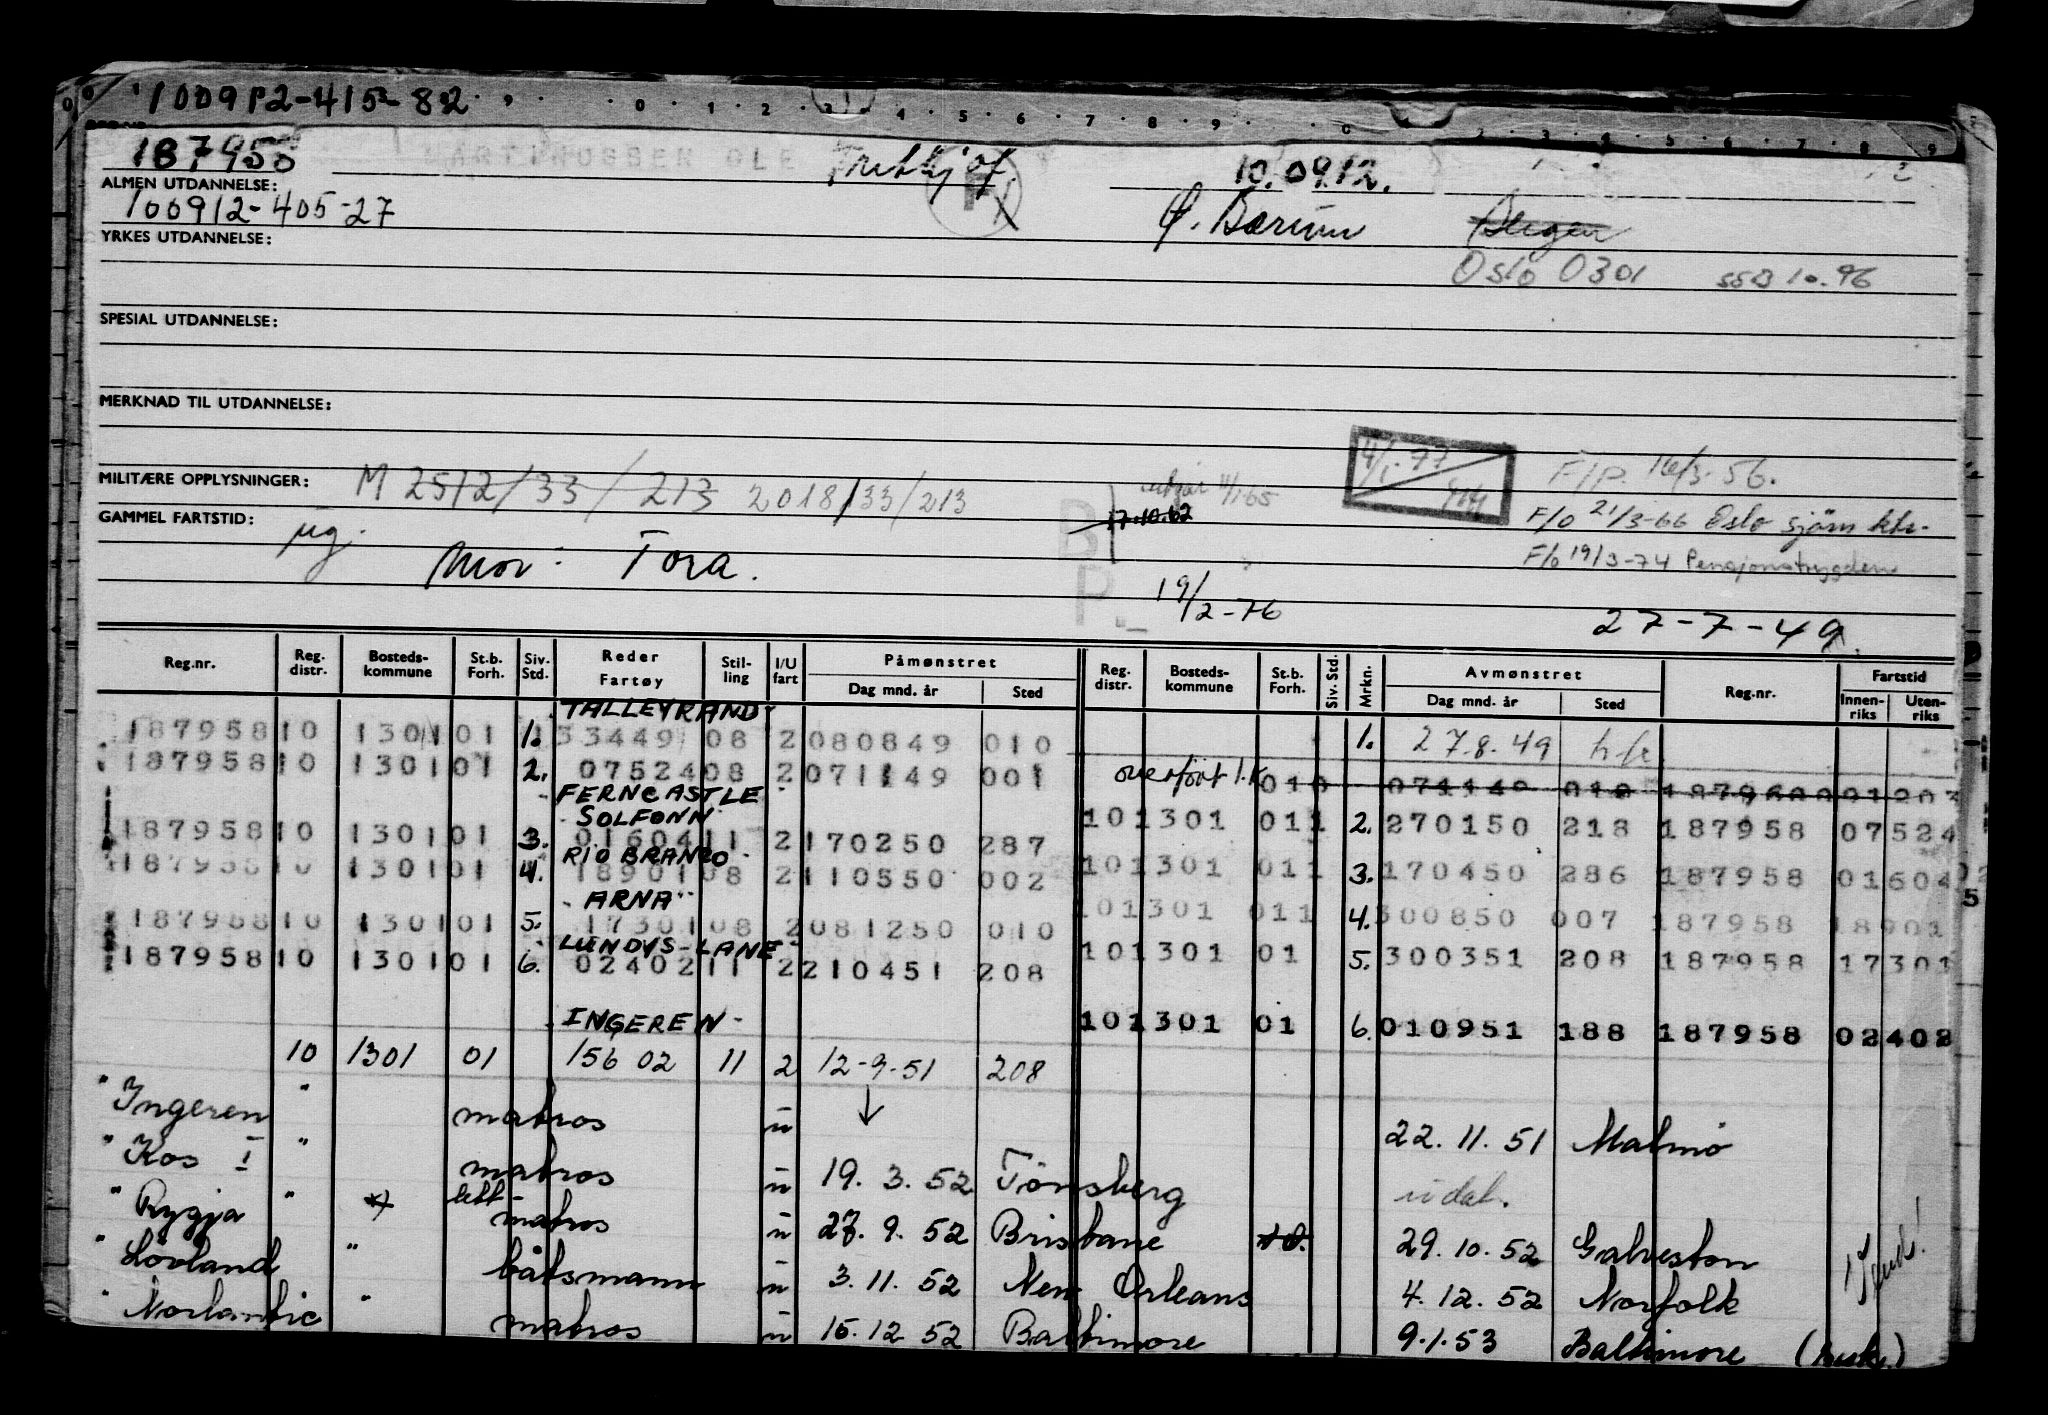 100912-415-82
187958 MARTINUSSEN OLE Fritkjof. 10.09.12.
ALMEN UTDANNELSE:
100912-405-27 Ø. Bærum
YRKES UTDANNELSE:
Oslo 0301 10.96
SPESIAL UTDANNELSE:
MERKNAD TIL UTDANNELSE:
MILITÆRE OPPLYSNINGER: M 2512/33/213 2018/33/213
4/1-77
F/P. 16/3-56.
17.10.62
GAMMEL FARTSTID: ug.
F/o 21/3-66 Oslo sjøm ktr.
Mor: Tora.
B
P.
F/o 19/3-74 Pensjonstrygden
19/2-76
27-7-49
Reg.nr. Reg. distr. Bosteds-kommune St.b. Forh. Siv. Std. Reder Fartøy Stil-ling I/U fart Påmønstret Dag mnd. år Sted Reg. distr. Bosteds-kommune St.b. Forh. Siv. Std. Mrkn. Avmønstret Dag mnd. år Sted Reg.nr. Fartstid Innen-riks Uten-riks
TALLEYRAND
187958 10 1301 01 1. 33449 08 2 080849 010 1. 27.8.49
187958 10 1301 01 2. 07524 08 2 071149 001 overført 1.k 010 071149 010
FERNCASTLE
SOLFONN
101301 011 2. 270150 218 187958 07524
187958 10 1301 01 3. 01604 11 2 170250 287
RIO BRANCO
101301 011 3. 170450 286 187958 01604
187958 10 1301 01 4. 18901 08 2 110550 002
ARNA
101301 011 4. 300850 007 187958 18901
187958 10 1301 01 5. 17301 08 2 081250 010
LUNDYS-LANE
101301 01 5. 300351 208 187958 17301
187958 10 1301 01 6. 02402 11 2 210451 208
INGEREN
101301 01 6. 010951 188 187958 02402
10 1301 01 156 02 11 2 12-9-51 208
" Ingeren " matros u ↓ 22.11.51 Malmø
" Kos I " matros u 19.3.52 Tönsberg udat.
" Rygja " lett matros u 27.9.52 Brisbane 29.10.52 Galveston
" Lövland " båtsmann u 3.11.52 New Orleans 4.12.52 Norfolk
" Norlantic " matros u 15.12 52 Baltimore 9.1.53 Baltimore